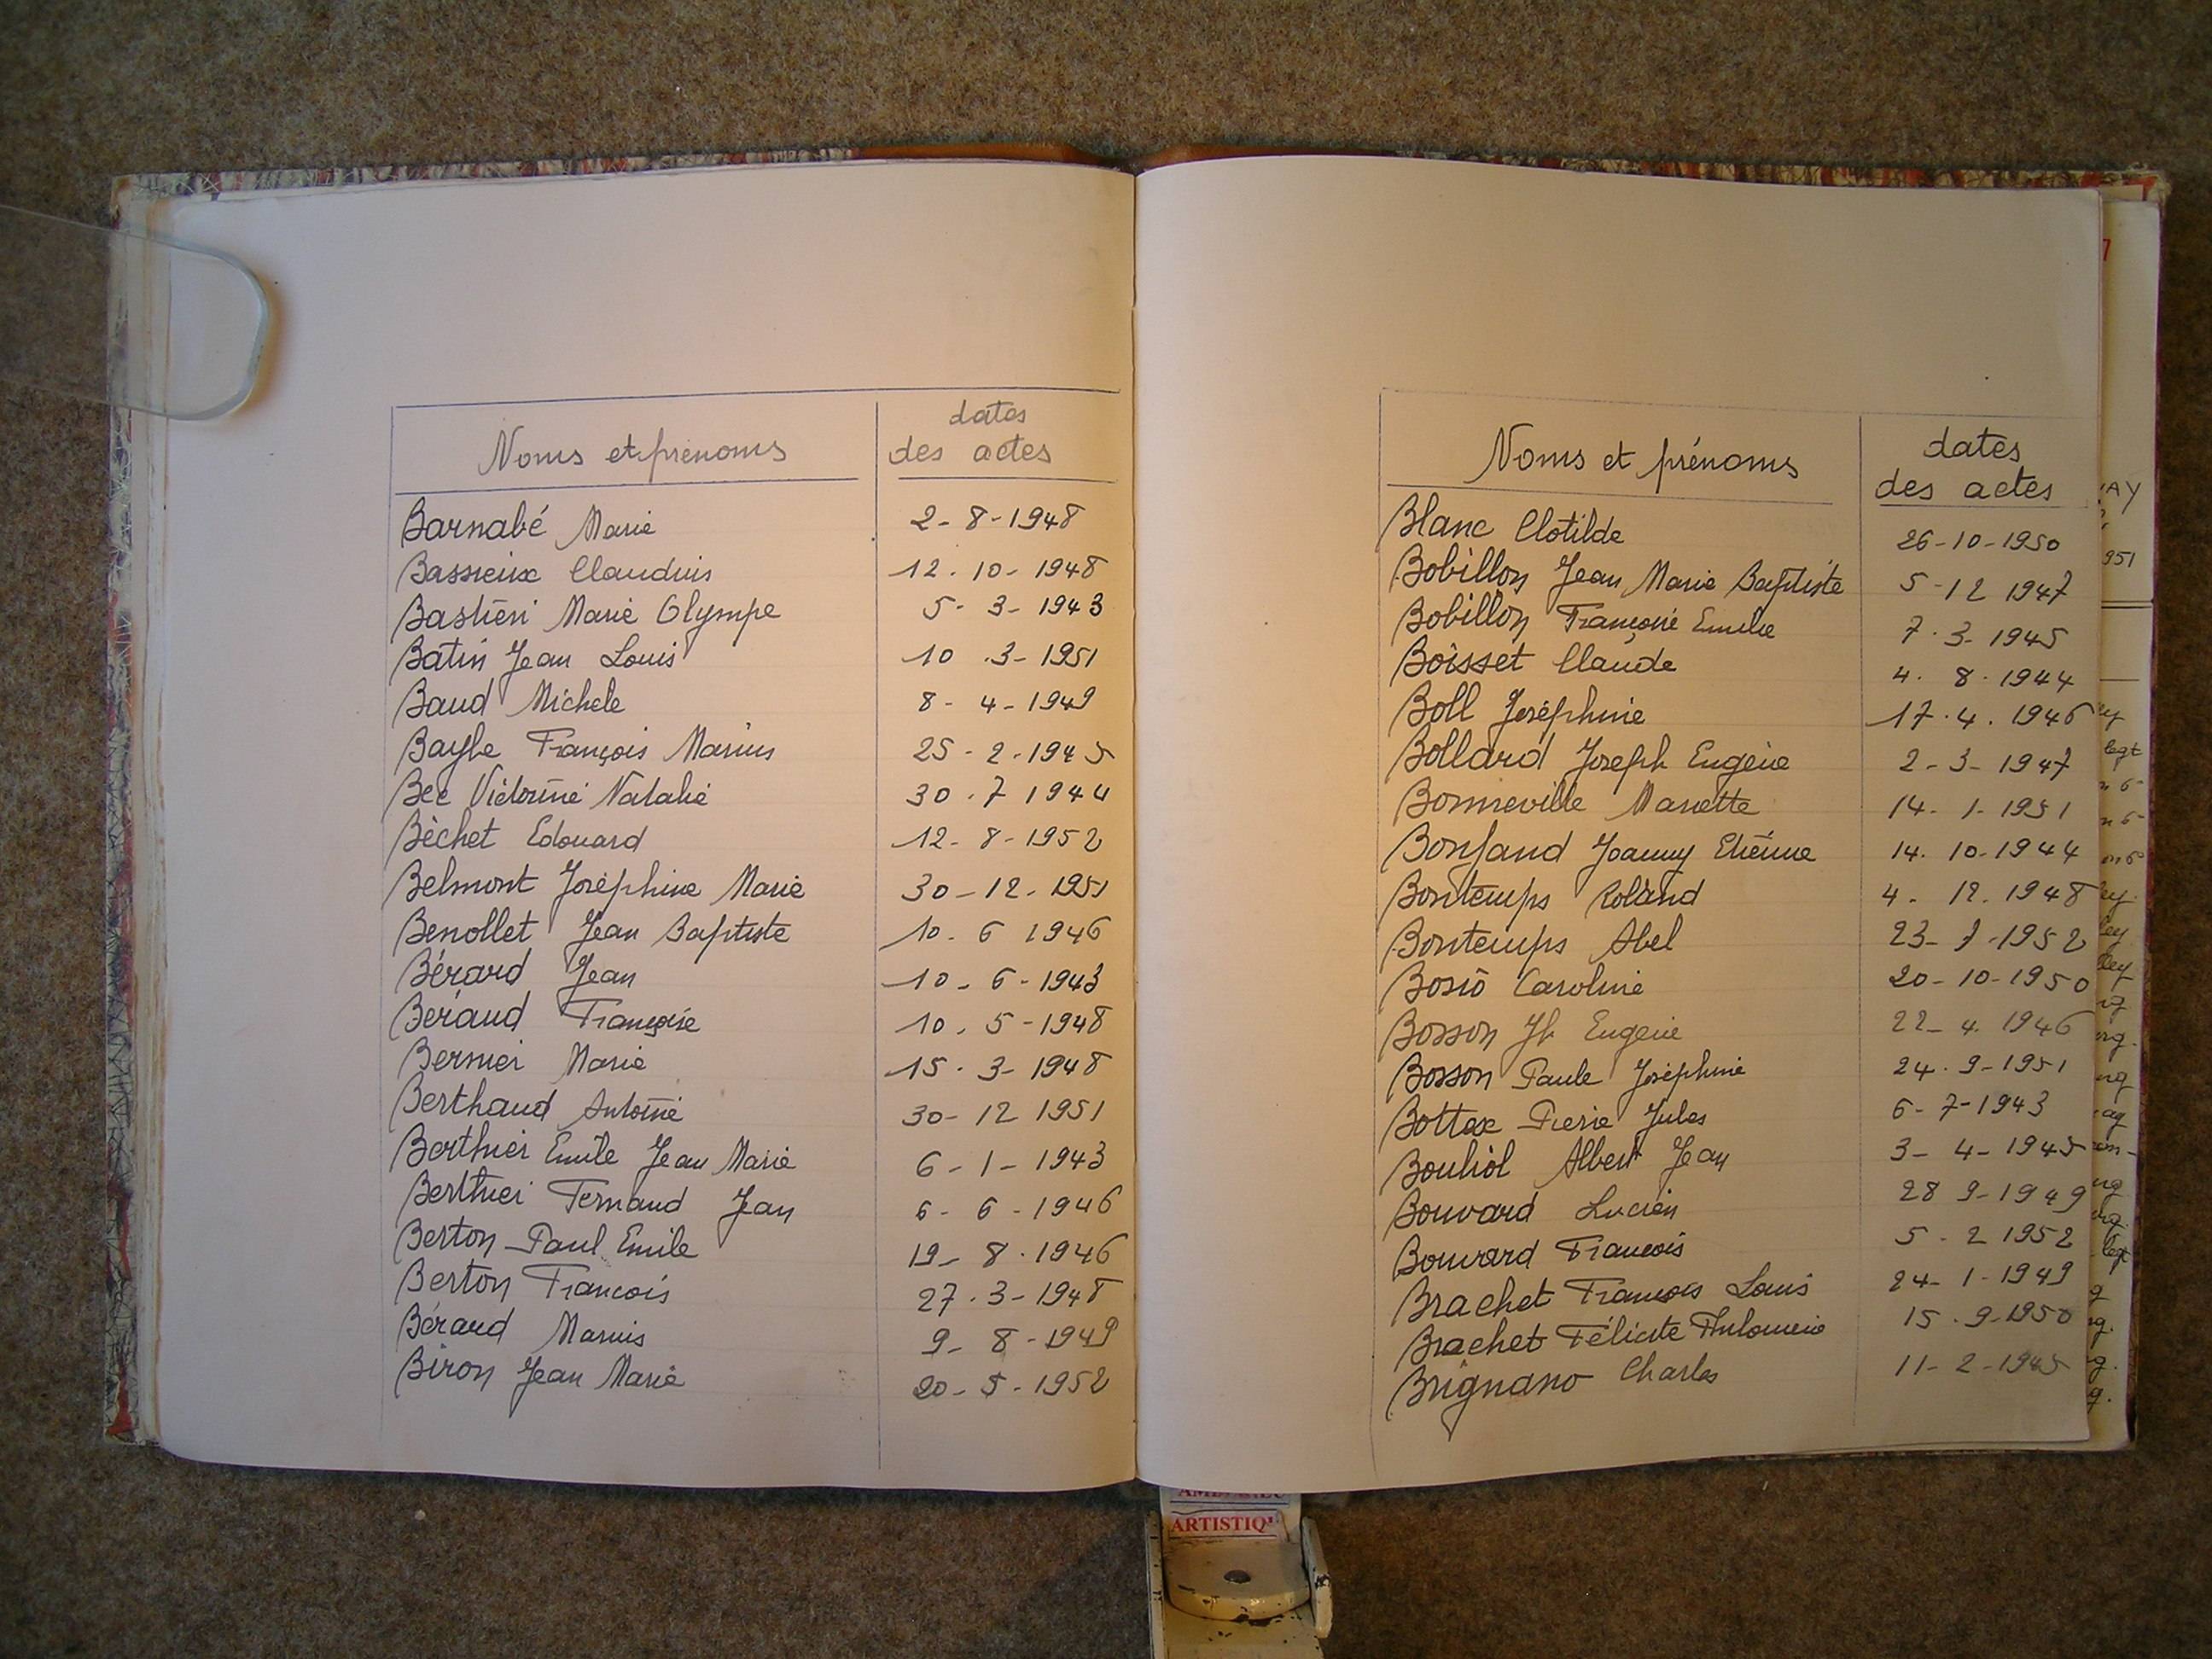 Noms et prénoms dates des actes
Barnabé Marie 2-8-1948
Bassieux Claudius 12.10-1948
Bastien Marie Olympe 5-3-1943
Batin Jean Louis 10.3-1951
Baud Michele 8-4-1949
Bayle François Marius 25-2.1945
Bec Victorine Natalie 30.7 1944
Bèchet Edouard 12-8-1952
Belmont Joséphine Marie 30-12-1951
Benollet Jean Baptiste 10.6 1946
Bérard Jean 10.6-1943
Béraud Françoise 10.5-1948
Bernier Marie 15.3-1948
Berthaud Antoine 30-12 1951
Berthier Emile Jean Marie 6-1-1943
Berthier Fernand Jean 6-6-1946
Berton Paul Emile 19-8.1946
Berton Francois 27.3-1948
Bérard Marius 9-8-1949
Biron Jean Marie 20-5-1952
Noms et prénoms dates des actes
Blanc Clotilde 26-10-1950
Bobillon Jean Marie Baptiste 5-12 1947
Bobillon Françoise Emilie 7.3-1945
Boisset Claude 4.8.1944
Boll Joséphine 17.4.1946
Bollard Joseph Eugène 2-3-1947
Bonneville Mariette 14-1-1951
Bonfand Joanny Etienne 14.10-1944
Bontemps Roland 4.12.1948
Bontemps Abel 23-7-1952
Bosio Caroline 20-10-1950
Bosson Jh Eugène 22-4.1946
Bosson Paule Joséphine 24.9-1951
Bottex Pierre Jules 6-7-1943
Bouhiol Albert Jean 3-4-1945
Bouvard Lucien 28 9-1949
Bouvard Francois 5-2 1952
Brachet François Louis 24-1-1949
Brachet Félicité 15.9-1950
Brignano Charles 11-2-1945
AY
951
ARTISTIQ